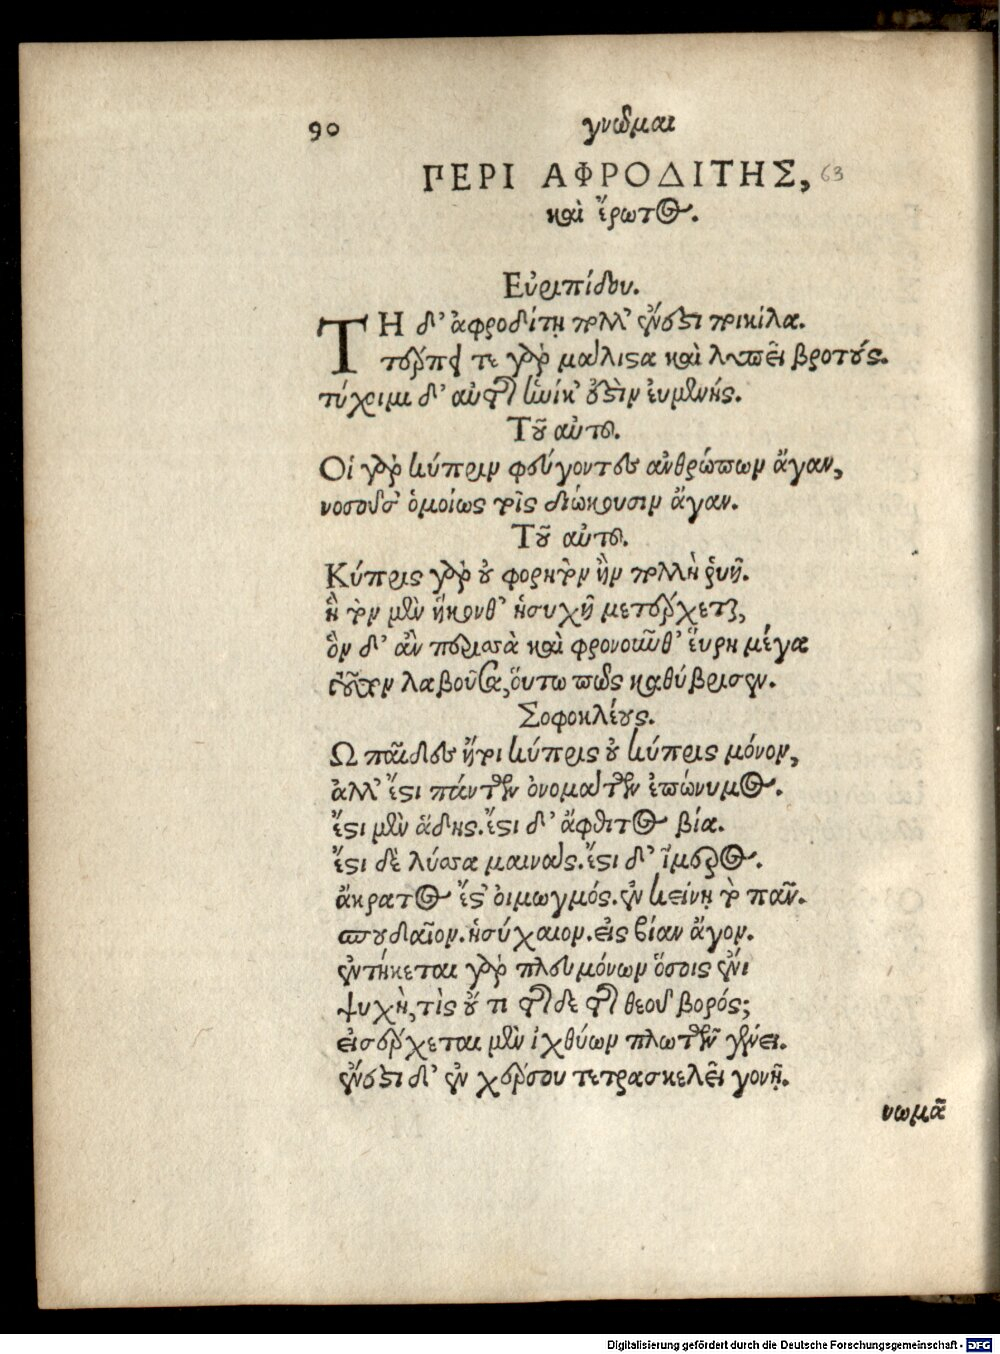 90 γνῶμαι
ΠΕΡΙ ΑΦΡΟΔΙΤΗΣ, 63
καὶ ἔρωτος.
Εὐριπίδου.
ΤΗ δ' ἀφροδίτῃ πόλλ' ἔνεστι ποικίλα.
τέρπει τε γὰρ μάλιστα καὶ λυπεῖ βροτούς.
τύχοιμι δ' αὐτῆς ἡνίκ' ἐστὶν ἐυμενής.
Τοῦ αὐτοῦ.
Οἱ γὰρ κύπριν φεύγοντες ἀνθρώπων ἄγαν,
νοσοῦσ' ὁμοίως τοῖς διώκουσιν ἄγαν.
Τοῦ αὐτοῦ.
Κύπρις γὰρ οὐ φορητὸν ἢν πολλὴ ῥυῇ.
ἣ τὸν μὲν ἥκονθ' ἡσυχῇ μετέρχεται,
ὃν δ' ἂν περισσὰ καὶ φρονοῦνθ' ἕυρῃ μέγα
τοῦτον λαβοῦσα, ὅυτω πῶς καθύβρισεν.
Σοφοκλέους.
Ω παῖδες ἤτοι κύπρις οὐ κύπρις μόνον,
ἀλλ' ἔστι πάντων ὀνομάτων ἐπώνυμος.
ἔστι μὲν ἅδης. ἔστι δ' ἄφθιτος βία.
ἔστι δὲ λύσσα μαινάς. ἔστι δ' ἵμερος.
ἄκρατος ἔστ' ὀιμωγμός. ἐν κείνῃ τὸ πᾶν.
σπουδαῖον. ἡσύχαιον. εἰς βίαν ἄγον.
ἐντήκεται γὰρ πλευμόνων ὅσοις ἔνι
ψυχὴ, τὶς οὔ τι τῆσδε τῆς θεοῦ βορός;
εἰσέρχεται μὲν ἰχθύων πλωτῶν γένει.
ἔνεστι δ' ἐν χέρσου τετρασκελεῖ γονῇ.
νωμᾷ
Digitalisierung gefördert durch die Deutsche Forschungsgemeinschaft - DFG